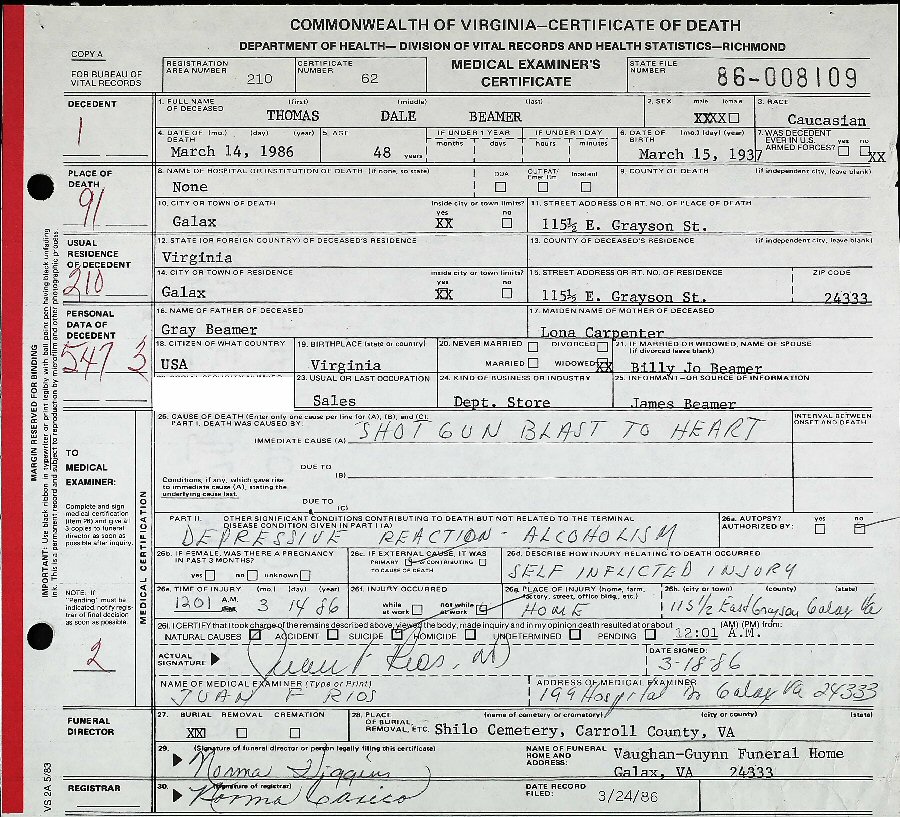 COMMONWEALTH OF VIRGINIA—CERTIFICATE OF DEATH
DEPARTMENT OF HEALTH— DIVISION OF VITAL RECORDS AND HEALTH STATISTICS—RICHMOND
COPY A
FOR BUREAU OF VITAL RECORDS
REGISTRATION AREA NUMBER 210
CERTIFICATE NUMBER 62
MEDICAL EXAMINER'S CERTIFICATE
STATE FILE NUMBER 86-008109
DECEDENT
1
1. FULL NAME OF DECEASED (first) (middle) (last)
THOMAS DALE BEAMER
2. SEX male female
XXXX
3. RACE
Caucasian
4. DATE OF DEATH (mo.) (day) (year)
March 14, 1986
5. AGE
48 years
IF UNDER 1 YEAR months days
IF UNDER 1 DAY hours minutes
6. DATE OF BIRTH (mo.) (day) (year)
March 15, 1937
7. WAS DECEDENT EVER IN U.S. ARMED FORCES? yes no
XX
PLACE OF DEATH
91
8. NAME OF HOSPITAL OR INSTITUTION OF DEATH (if none, so state)
None
DOA OUT PAT/ Emer Rm Inpatient
9. COUNTY OF DEATH (if independent city, leave blank)
10. CITY OR TOWN OF DEATH inside city or town limits? yes no
Galax XX
11. STREET ADDRESS OR RT. NO. OF PLACE OF DEATH
115½ E. Grayson St.
USUAL RESIDENCE OF DECEDENT
210
12. STATE (OR FOREIGN COUNTRY) OF DECEASED'S RESIDENCE
Virginia
13. COUNTY OF DECEASED'S RESIDENCE (if independent city, leave blank)
14. CITY OR TOWN OF RESIDENCE inside city or town limits? yes no
Galax XX
15. STREET ADDRESS OR RT. NO. OF RESIDENCE ZIP CODE
115½ E. Grayson St. 24333
PERSONAL DATA OF DECEDENT
547 3
16. NAME OF FATHER OF DECEASED
Gray Beamer
17. MAIDEN NAME OF MOTHER OF DECEASED
Lona Carpenter
18. CITIZEN OF WHAT COUNTRY
USA
19. BIRTHPLACE (state or country)
Virginia
20. NEVER MARRIED DIVORCED
MARRIED WIDOWED XX
21. IF MARRIED OR WIDOWED, NAME OF SPOUSE (if divorced leave blank)
Billy Jo Beamer
23. USUAL OR LAST OCCUPATION
Sales
24. KIND OF BUSINESS OR INDUSTRY
Dept. Store
25. INFORMANT—OR SOURCE OF INFORMATION
James Beamer
MARGIN RESERVED FOR BINDING
IMPORTANT: Use black ribbon in typewriter or print legibly with ball point pen having black unfading
ink. This is a permanent record and subject to reproduction by microfilm and other photographic process
TO MEDICAL EXAMINER:
Complete and sign
medical certification
(item 26) and give all
3 copies to funeral
director as soon as
possible after inquiry.
NOTE: If
"Pending" must be
indicated notify regis-
trar of final decision
as soon as possible.
2
MEDICAL CERTIFICATION
26. CAUSE OF DEATH (Enter only one cause per line for (A), (B), and (C).
PART I. DEATH WAS CAUSED BY:
IMMEDIATE CAUSE (A) SHOT GUN BLAST TO HEART
INTERVAL BETWEEN ONSET AND DEATH
DUE TO
(B)
Conditions, if any, which gave rise
to immediate cause (A), stating the
underlying cause last.
DUE TO
(C)
PART II. OTHER SIGNIFICANT CONDITIONS CONTRIBUTING TO DEATH BUT NOT RELATED TO THE TERMINAL
DISEASE CONDITION GIVEN IN PART I (A)
DEPRESSIVE REACTION - ALCOHOLISM
26a. AUTOPSY? AUTHORIZED BY: yes no
26b. IF FEMALE, WAS THERE A PREGNANCY IN PAST 3 MONTHS?
yes no unknown
26c. IF EXTERNAL CAUSE, IT WAS
PRIMARY CONTRIBUTING
TO CAUSE OF DEATH
26d. DESCRIBE HOW INJURY RELATING TO DEATH OCCURRED
SELF INFLICTED INJURY
26e. TIME OF INJURY (mo.) (day) (year)
1201 A.M. P.M. 3 14 86
26f. INJURY OCCURRED
while at work not while at work
26g. PLACE OF INJURY (home, farm, factory, street, office bldg., etc.)
HOME
26h. (city or town) (county) (state)
115 1/2 East Grayson Galax Va
26i. I CERTIFY that I took charge of the remains described above, viewed the body, made inquiry and in my opinion death resulted at or about (AM) (PM) from:
NATURAL CAUSES ACCIDENT SUICIDE HOMICIDE UNDETERMINED PENDING 12:01 A.M.
ACTUAL SIGNATURE Juan F Rios, MD
DATE SIGNED:
3-18-86
NAME OF MEDICAL EXAMINER (Type or Print)
JUAN F RIOS
ADDRESS OF MEDICAL EXAMINER
199 Hospital Dr Galax Va 24333
FUNERAL DIRECTOR
27. BURIAL REMOVAL CREMATION
XX
28. PLACE OF BURIAL, REMOVAL, ETC. (name of cemetery or crematory) (city or county) (state)
Shilo Cemetery, Carroll County, VA
29. (Signature of funeral director or person legally filing this certificate)
Norma Higgins
NAME OF FUNERAL HOME AND ADDRESS:
Vaughan-Guynn Funeral Home
Galax, VA 24333
REGISTRAR
30. (Signature of registrar)
Norma Carico
DATE RECORD FILED: 3/24/86
VS 2A 5/83